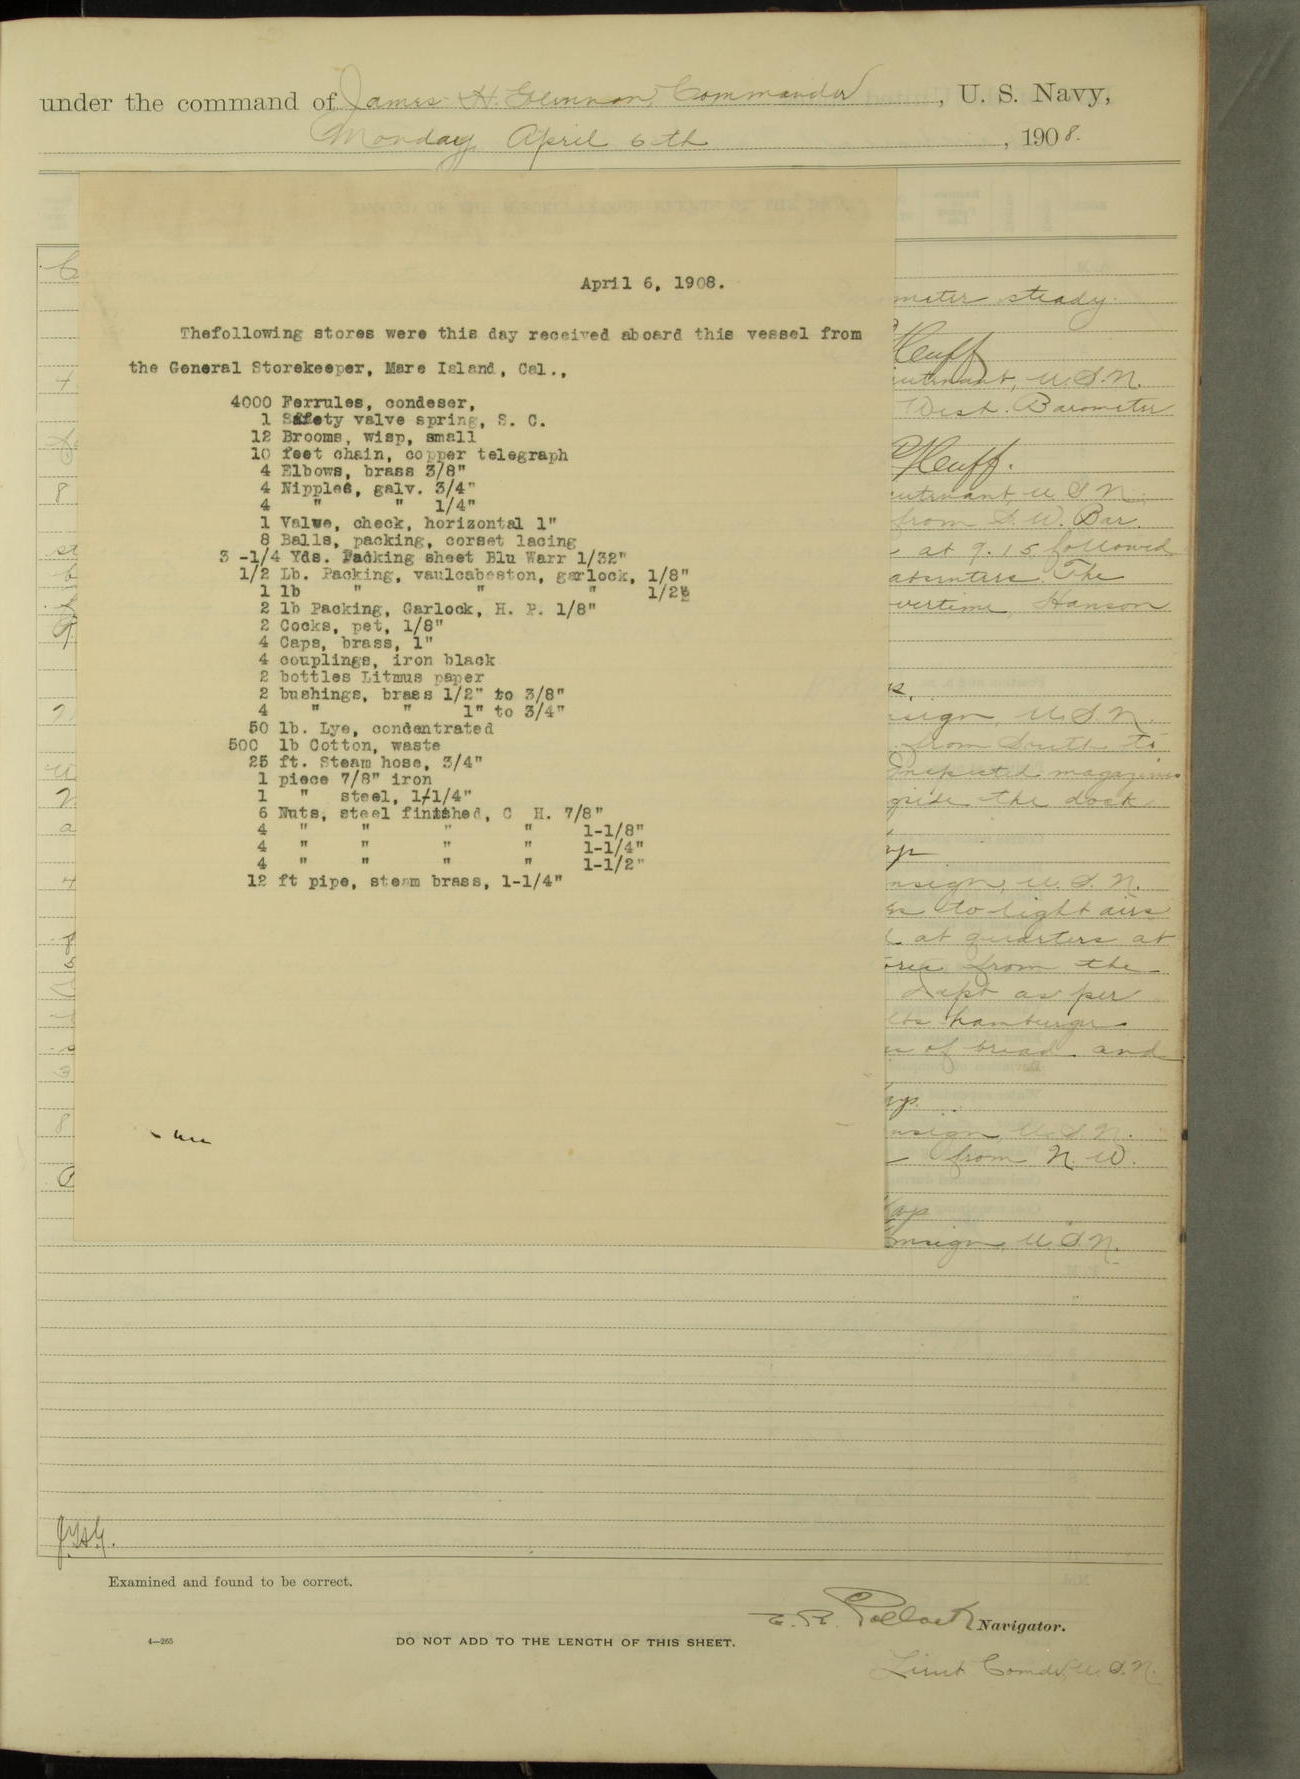 under the command of James H. Glennon, Commander, U. S. Navy,
Monday April 6th, 1908.
April 6, 1908.
Thefollowing stores were this day received aboard this vessel from
the General Storekeeper, Mare Island, Cal.,
4000 Ferrules, condeser,
1 Safety valve spring, S. C.
12 Brooms, wisp, small
10 feet chain, copper telegraph
4 Elbows, brass 3/8"
4 Nipples, galv. 3/4"
4 " " 1/4"
1 Valve, check, horizontal 1"
8 Balls, packing, corset lacing
3 -1/4 Yds. Packing sheet Blu Warr 1/32"
1/2 Lb. Packing, vaulcabeston, garlock, 1/8"
1 lb " " " 1/2"
2 lb Packing, Garlock, H. P. 1/8"
2 Cocks, pet, 1/8"
4 Caps, brass, 1"
4 couplings, iron black
2 bottles Litmus paper
2 bushings, brass 1/2" to 3/8"
4 " " 1" to 3/4"
50 lb. Lye, condentrated
500 lb Cotton, waste
25 ft. Steam hose, 3/4"
1 piece 7/8" iron
1 " steel, 1-1/4"
6 Nuts, steel finished, C H. 7/8"
4 " " " " 1-1/8"
4 " " " " 1-1/4"
4 " " " " 1-1/2"
12 ft pipe, steam brass, 1-1/4"
steady.
Huff
U.S.N.
West. Barometer
Huff.
U.S.N.
from S.W. Bar.
at 9.15 followed
absentees. The
Hanson
U.S.N.
from South to
Inspected magazines
the dock
U.S.N.
to light airs
at quarters at
from the
Dept as per
hamburger
of bread and
U.S.N.
from N.W.
Ensign, U.S.N.
J.H.G.
Examined and found to be correct.
E. R. Pollock Navigator.
4—265
DO NOT ADD TO THE LENGTH OF THIS SHEET.
Lieut Comdr, U.S.N.